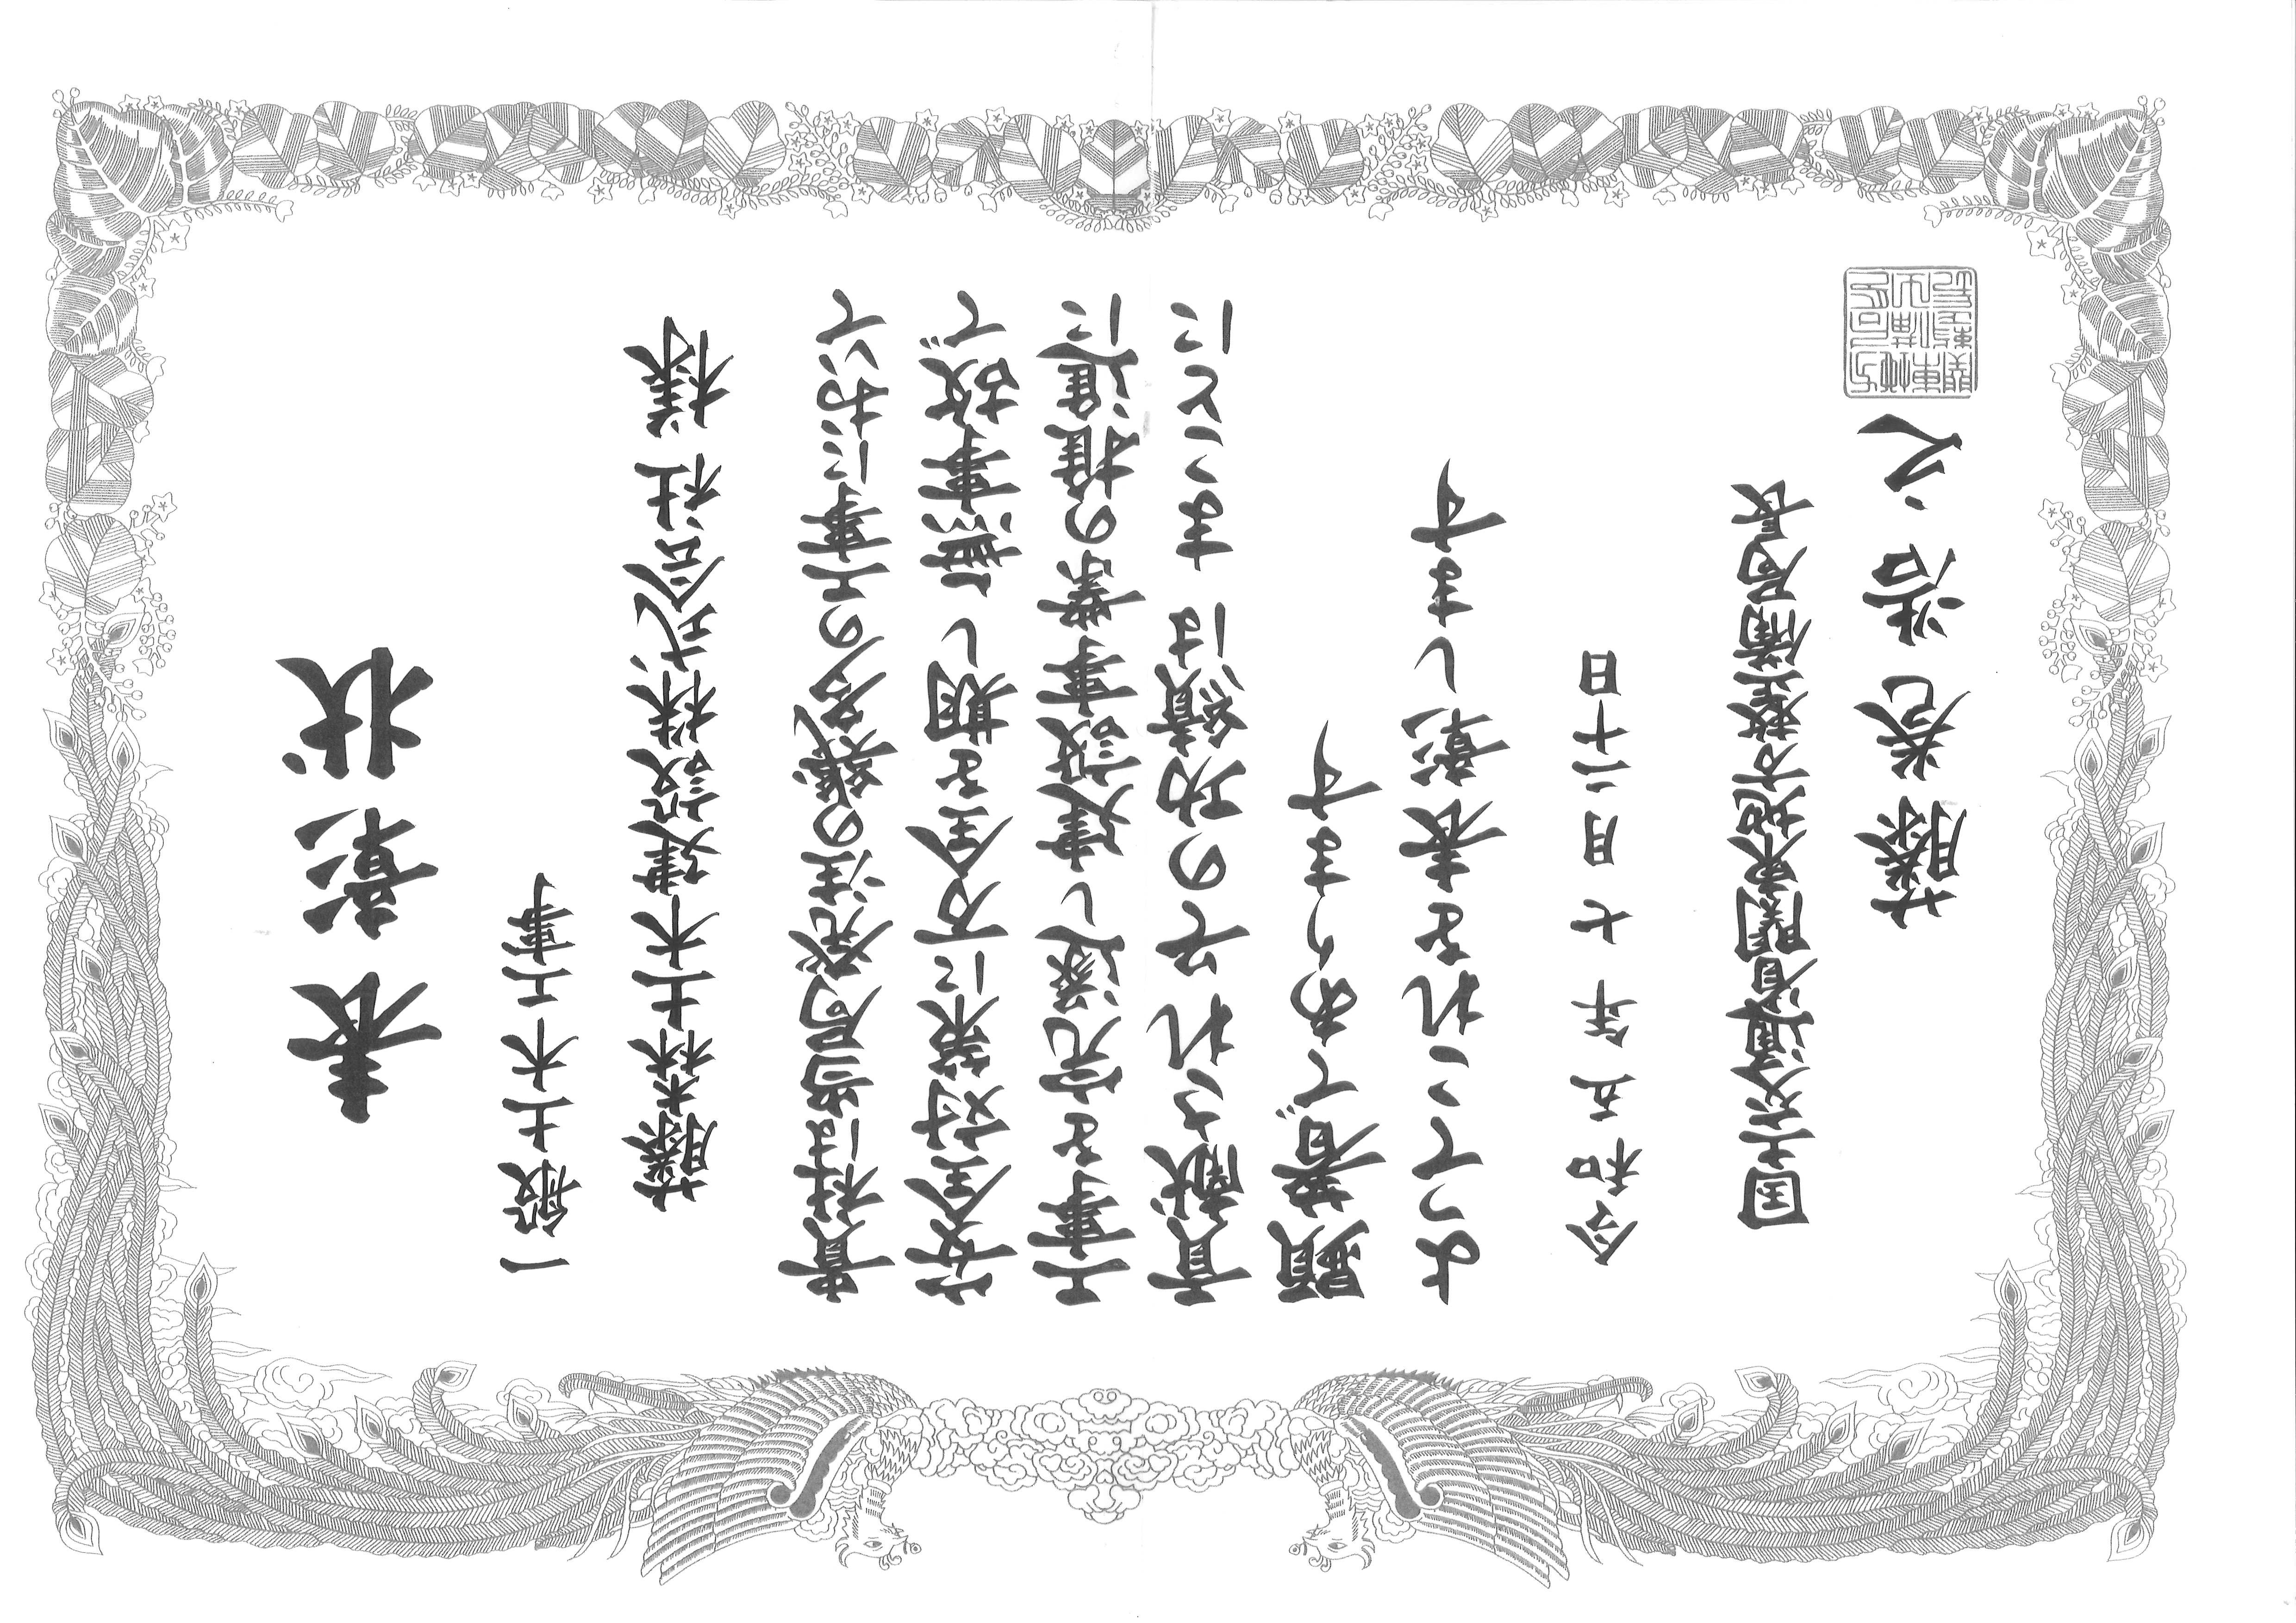 表彰状
一般土木工事
藤森土木建設株式会社 様
貴社は当局発注の幾多の工事において
安全対策に万全を期し 無事故で
工事を完遂し建設事業の推進に
貢献され その功績は まことに
顕著であります
よってこれを表彰します
令和五年七月二十日
国土交通省関東地方整備局長
藤巻浩之